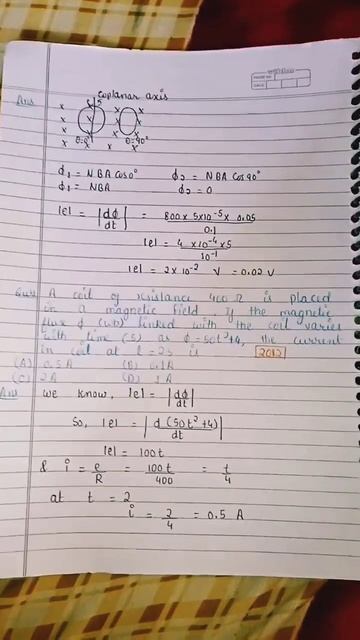 PAGE NO.
DATE
Ans
Coplanar axis
x x S x x
x x x x
x x x x
θ=0° θ=90°
x x x x
ϕ₁ = NBA cos0° ϕ₂ = NBA cos90°
ϕ₁ = NBA ϕ₂ = 0
|e| = |dϕ/dt| = 800 x 5x10⁻⁵ x 0.05 / 0.1
|e| = 4 x10⁻⁴x5 / 10⁻¹
|e| = 2 x 10⁻² V = 0.02 V
Ques A coil of resistance 400 Ω is placed
in a magnetic field. If the magnetic
flux ϕ (wb) linked with the coil varies
with time (S) as ϕ = 50t²+4, the current
in coil at t = 2s is 2012
(A) 0.5A (B) 0.1A
(C) 2A (D) 1A
Ans we know, |e| = |dϕ/dt|
So, |e| = |d(50t²+4)/dt|
|e| = 100t
& i = e/R = 100t/400 = t/4
at t = 2
i = 2/4 = 0.5 A